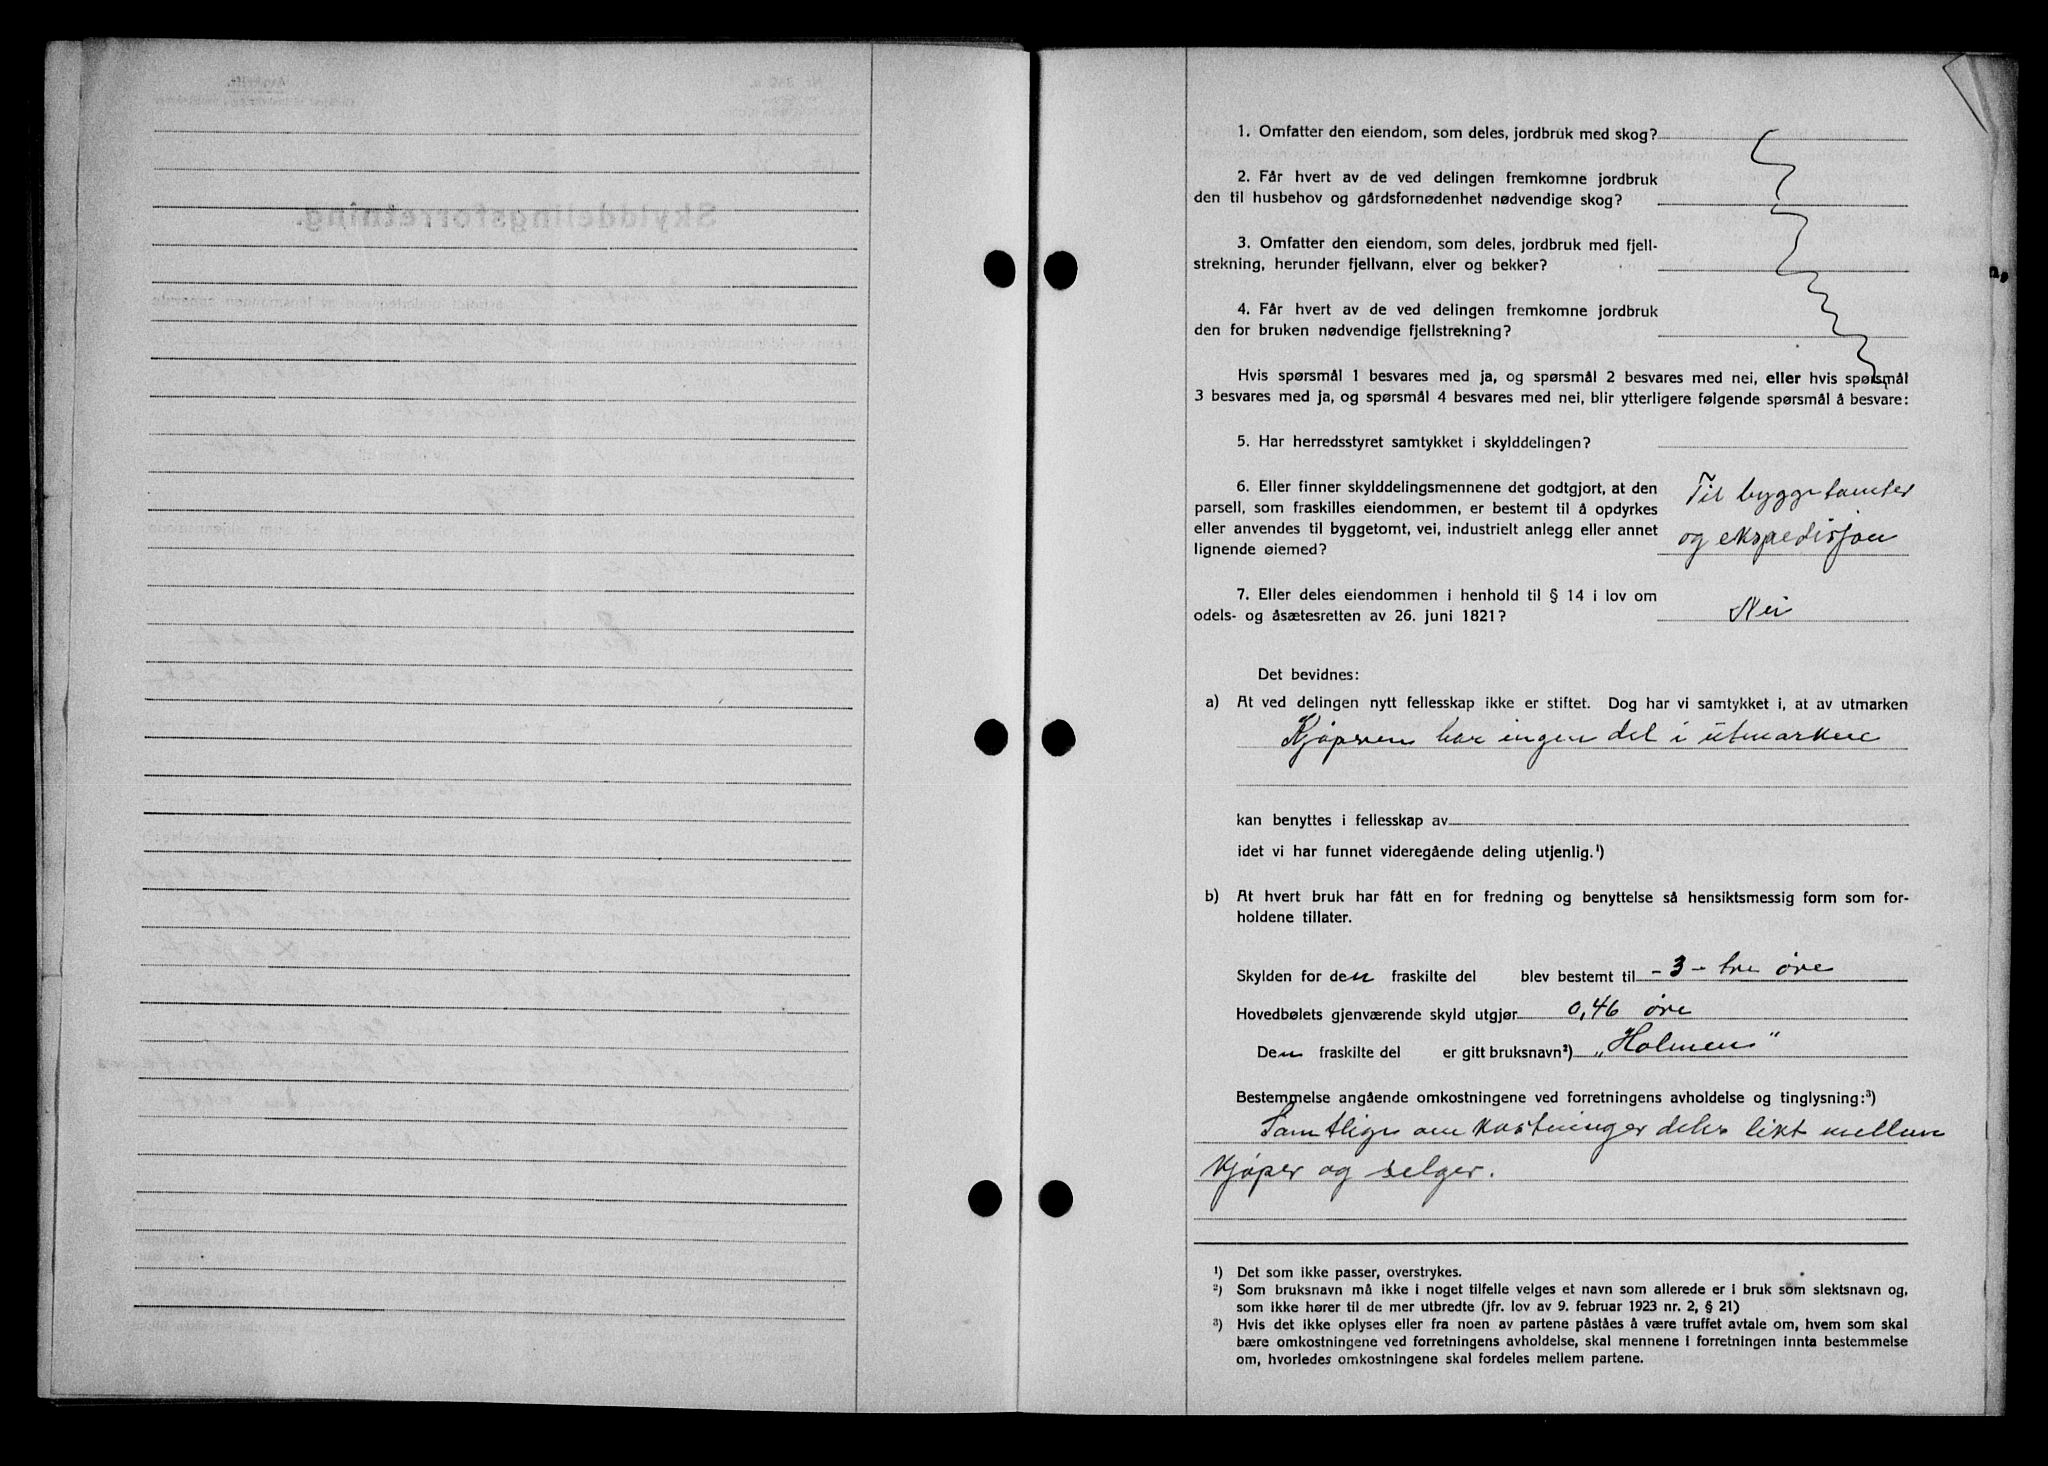 1. Omfatter den eiendom, som deles, jordbruk med skog?
2. Får hvert av de ved delingen fremkomne jordbruk
den til husbehov og gårdsfornødenhet nødvendige skog?
3. Omfatter den eiendom, som deles, jordbruk med fjell-
strekning, herunder fjellvann, elver og bekker?
4. Får hvert av de ved delingen fremkomne jordbruk
den for bruken nødvendige fjellstrekning?
Hvis spørsmål 1 besvares med ja, og spørsmål 2 besvares med nei, eller hvis spørsmål
3 besvares med ja, og spørsmål 4 besvares med nei, blir ytterligere følgende spørsmål å besvare:
5. Har herredsstyret samtykket i skylddelingen?
6. Eller finner skylddelingsmennene det godtgjort, at den
parsell, som fraskilles eiendommen, er bestemt til å opdyrkes
eller anvendes til byggetomt, vei, industrielt anlegg eller annet
lignende øiemed?
Til byggetomter
og ekspedisjon
7. Eller deles eiendommen i henhold til § 14 i lov om
odels- og åsætesretten av 26. juni 1821?
Nei
Det bevidnes:
a) At ved delingen nytt fellesskap ikke er stiftet. Dog har vi samtykket i, at av utmarken
Kjøperen har ingen del i utmarken
kan benyttes i fellesskap av
idet vi har funnet videregående deling utjenlig.¹)
b) At hvert bruk har fått en for fredning og benyttelse så hensiktsmessig form som for-
holdene tillater.
Skylden for den fraskilte del blev bestemt til - 3 - tre øre
Hovedbølets gjenværende skyld utgjør 0,46 øre
Den fraskilte del er gitt bruksnavn²) „Holmen"
Bestemmelse angående omkostningene ved forretningens avholdelse og tinglysning:³)
Samtlige omkostninger deles likt mellem
kjøper og selger.
¹) Det som ikke passer, overstrykes.
²) Som bruksnavn må ikke i noget tilfelle velges et navn som allerede er i bruk som slektsnavn og,
som ikke hører til de mer utbredte (jfr. lov av 9. februar 1923 nr. 2, § 21)
³) Hvis det ikke oplyses eller fra noen av partene påståes å være truffet avtale om, hvem som skal
bære omkostningene ved forretningens avholdelse, skal mennene i forretningen innta bestemmelse
om, hvorledes omkostningene skal fordeles mellem partene.